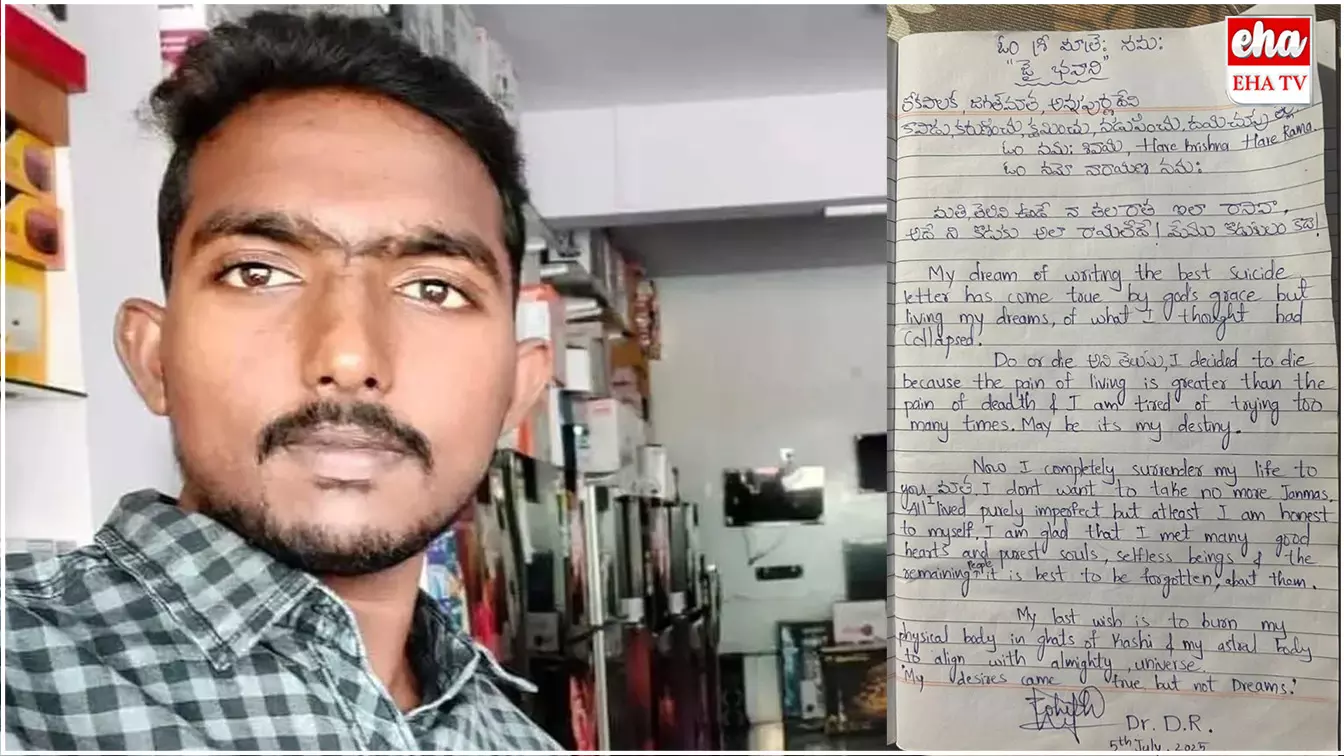 eha
EHA TV
ఓం శ్రీ మాత్రే నమః
"జై భవాని"
లోకపాలక, జగత్‌మాత, అన్నపూర్ణదేవి
కాపాడు, కరుణించు, క్షమించు, నడుపించు,
ఓం నమః శివాయ, Hare krishna Hare Rama.
ఓం నమో నారాయణ నమః
మతి, తెలివి ఉండే నా తల రాత ఇలా రాసావా,
అదే నీ కొడుకు అలా రాయలేదే! మేము కొడుకులం కదా!
My dream of writing the best suicide
letter has come true by god's grace but
living my dreams, of what I thought had
Collapsed.
Do or die అని తెలుసు, I decided to die
because the pain of living is greater than the
pain of deadth & I am tired of trying too
many times. May be its my destiny.
Now I completely surrender my life to
you మాత. I dont want to take no more Janmas.
All I lived purely imperfect but atleast I am honest
to myself. I am glad that I met many good
hearts and purest souls, selfless beings & the
remaining people it is best to be forgotten, about them.
My last wish is to burn my
physical body in ghats of Kashi & my astral body
to align with almighty, universe.
"My desires came true but not Dreams."
Dr. D.R.
5th July, 2025